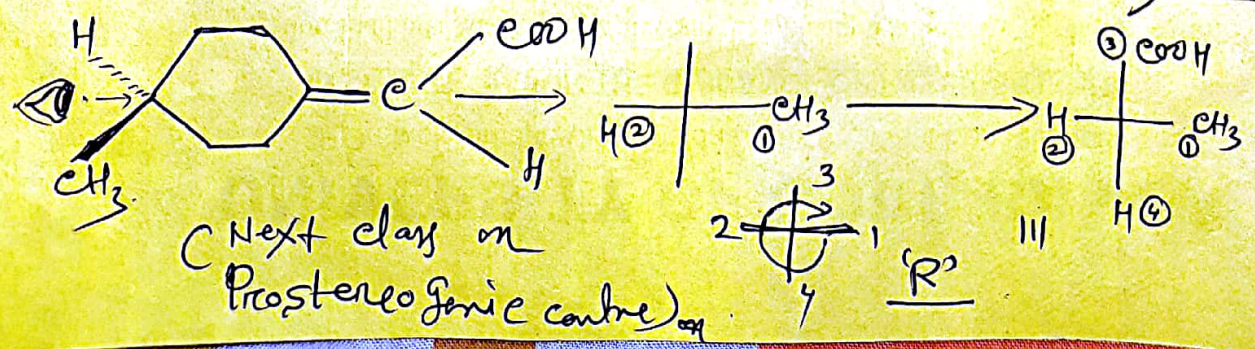 H
COOH
C
H
CH3
H②
CH3
①
③ COOH
H
②
CH3
①
H④
3
2
1
4
'R'
(Next class on
Prostereogenic centre)